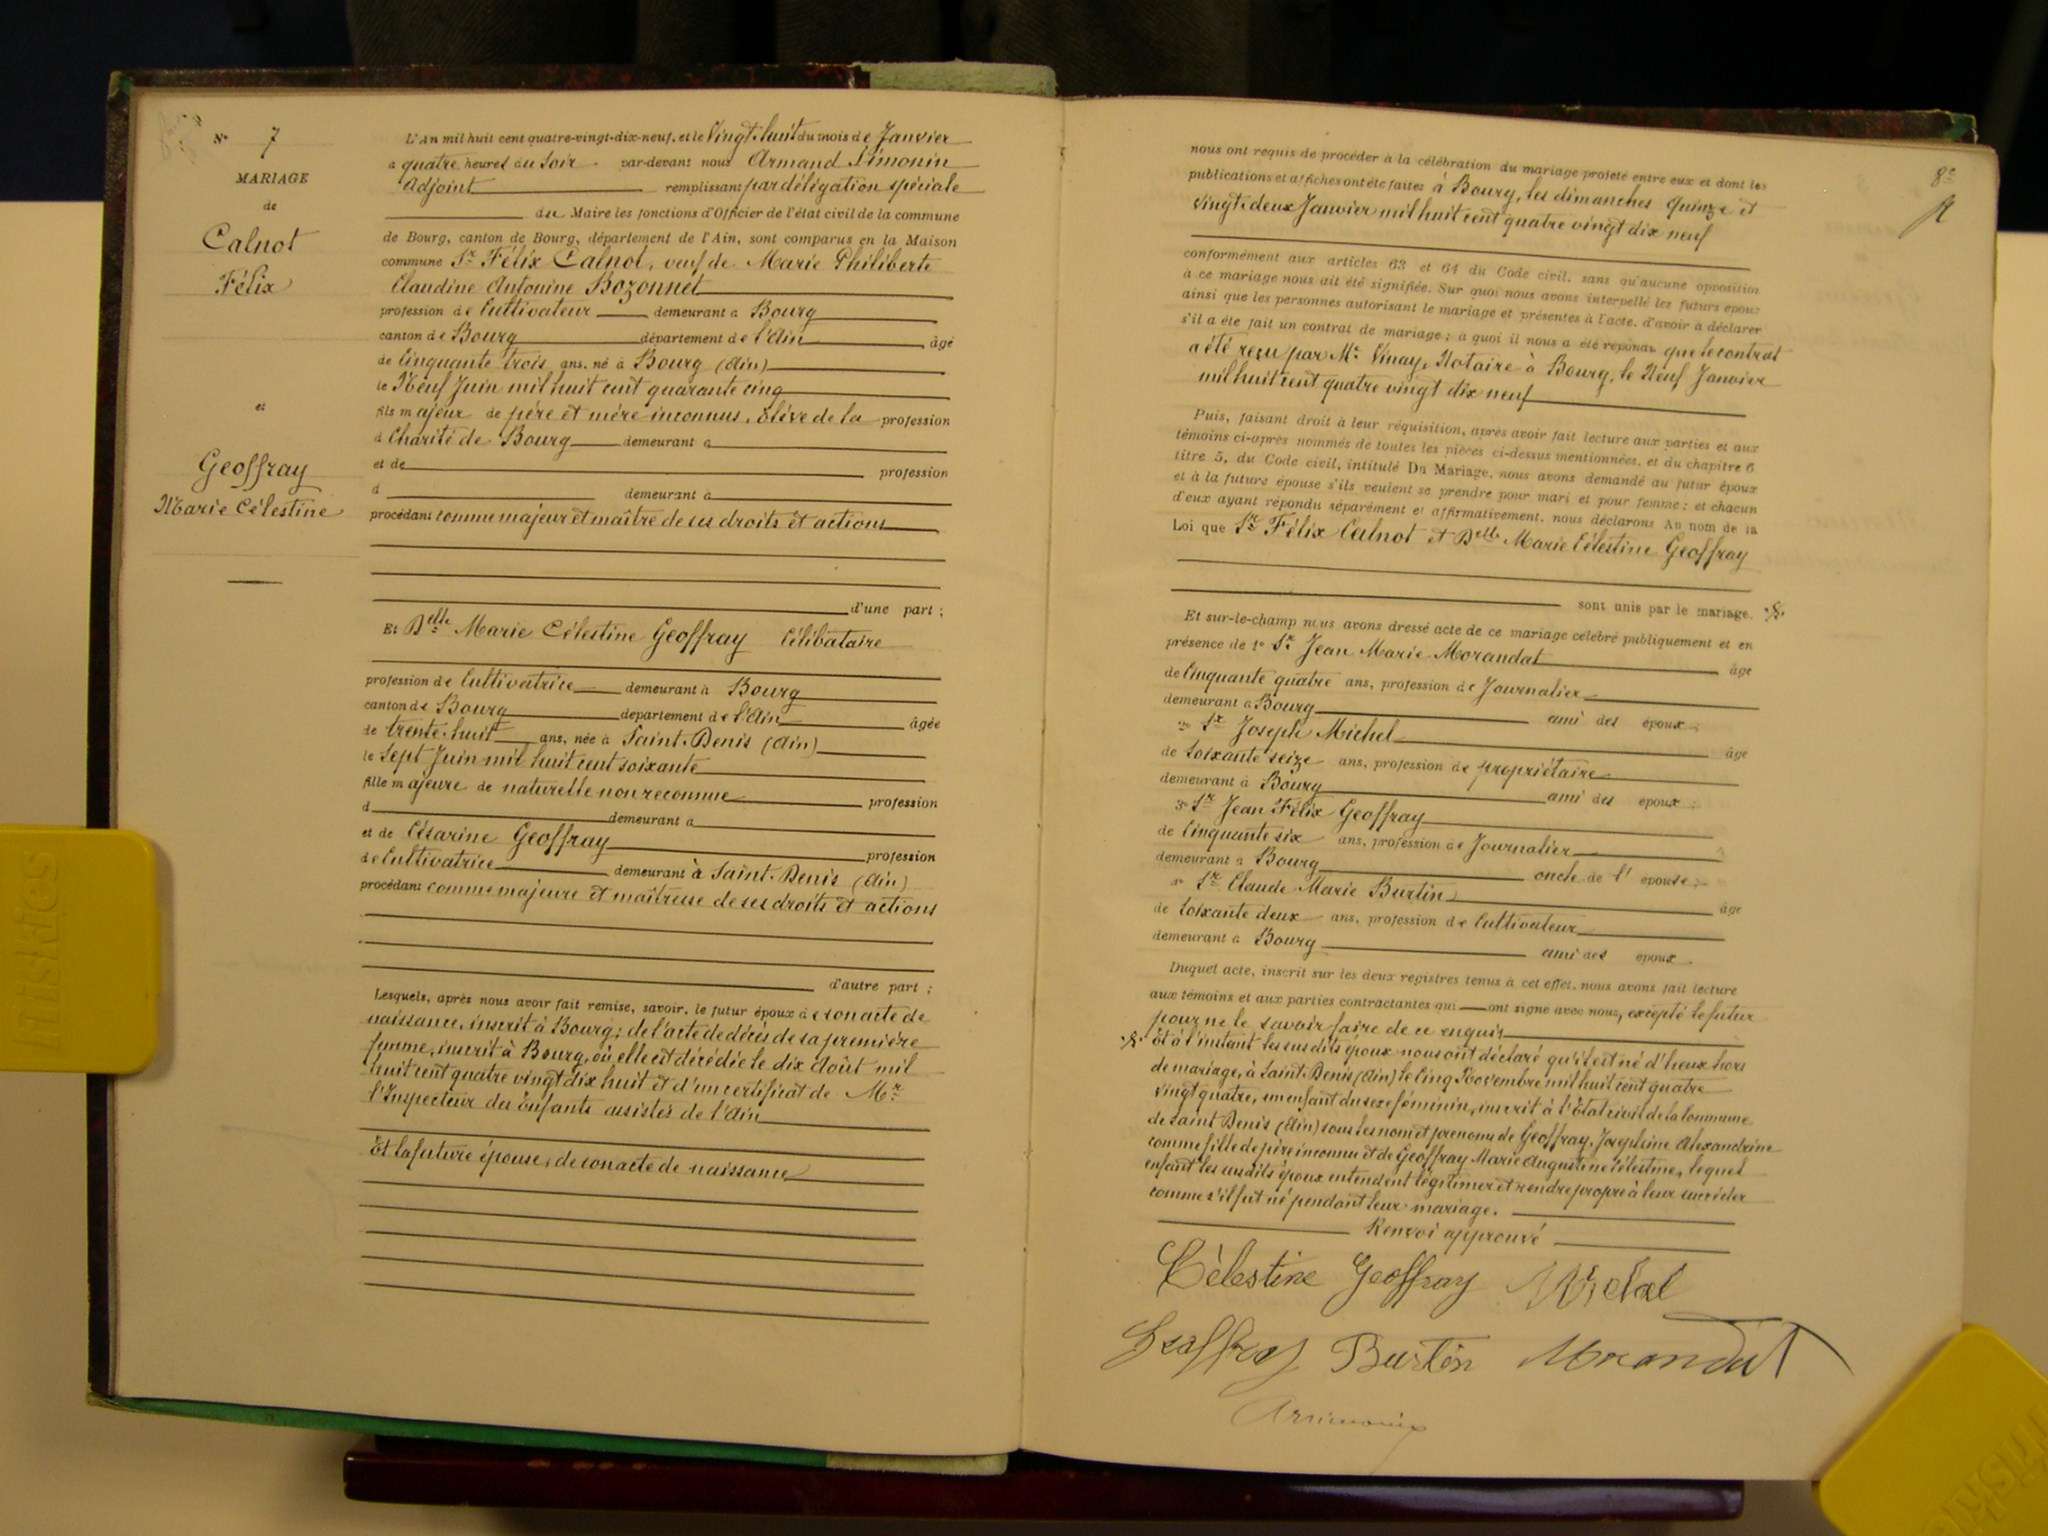 N° 7
MARIAGE
de
Calnot
Félix
et
Geoffray
Marie Célestine
L'an mil huit cent quatre-vingt-dix-neuf, et le Vingt-huit du mois de Janvier
à quatre heures du soir par-devant nous Armand Simonin
Adjoint remplissant par délégation spéciale
du Maire les fonctions d'Officier de l'état civil de la commune
de Bourg, canton de Bourg, département de l'Ain, sont comparus en la Maison
commune Sr Félix Calnot, veuf de Marie Philiberte
Claudine Antonine Bozonnet
profession de Cultivateur demeurant à Bourg
canton de Bourg département de l'Ain âgé
de Cinquante trois ans, né à Bourg (Ain)
le Neuf Juin mil huit cent quarante cinq
fils majeur de père et mère inconnus, Elève de la profession
d Charité de Bourg demeurant à
et de profession
d demeurant à
procédant comme majeur et maître de ses droits et actions
d'une part ;
Et Delle Marie Célestine Geoffray Célibataire
profession de Cultivatrice demeurant à Bourg
canton de Bourg département de l'Ain âgée
de trente-huit ans, née à Saint-Denis (Ain)
le Sept Juin mil huit cent soixante
fille majeure de naturelle non reconnue profession
d demeurant à
et de Césarine Geoffray profession
de Cultivatrice demeurant à Saint-Denis (Ain)
procédant comme majeure et maîtresse de ses droits et actions
d'autre part ;
Lesquels, après nous avoir fait remise, savoir, le futur époux de son acte de
naissance, inscrit à Bourg ; de l'acte de décès de sa première
femme, inscrit à Bourg, où elle est décédée le dix Août mil
huit cent quatre vingt dix huit et d'un certificat de Mr
l'Inspecteur des Enfants assistés de l'Ain
Et la future épouse, de son acte de naissance
8e
nous ont requis de procéder à la célébration du mariage projeté entre eux et dont les
publications et affiches ont été faites à Bourg, les dimanches quinze et
vingt-deux Janvier mil huit cent quatre vingt dix neuf
conformément aux articles 63 et 64 du Code civil, sans qu'aucune opposition
à ce mariage nous ait été signifiée. Sur quoi nous avons interpellé les futurs époux
ainsi que les personnes autorisant le mariage et présentes à l'acte, d'avoir à déclarer
s'il a été fait un contrat de mariage ; à quoi il nous a été répondu que le contrat
a été reçu par Me Vinay, Notaire à Bourg, le Neuf Janvier
mil huit cent quatre vingt dix neuf
Puis, faisant droit à leur réquisition, après avoir fait lecture aux parties et aux
témoins ci-après nommés de toutes les pièces ci-dessus mentionnées, et du chapitre 6
titre 5, du Code civil, intitulé Du Mariage, nous avons demandé au futur époux
et à la future épouse s'ils veulent se prendre pour mari et pour femme ; et chacun
d'eux ayant répondu séparément et affirmativement, nous déclarons Au nom de la
Loi que Sr Félix Calnot et Delle Marie Célestine Geoffray
sont unis par le mariage.
Et sur-le-champ nous avons dressé acte de ce mariage célébré publiquement et en
présence de 1° Sr Jean Marie Morandat âgé
de Cinquante quatre ans, profession de Journalier
demeurant à Bourg ami des époux ;
2° Sr Joseph Michel âgé
de soixante seize ans, profession de propriétaire
demeurant à Bourg ami des époux ;
3° Sr Jean Félix Geoffray
de Cinquante six ans, profession de Journalier
demeurant à Bourg oncle de l'épouse ;
Sr Claude Marie Burtin âgé
de soixante deux ans, profession de Cultivateur
demeurant à Bourg ami des époux.
Duquel acte, inscrit sur les deux registres tenus à cet effet, nous avons fait lecture
aux témoins et aux parties contractantes qui ont signé avec nous, excepté le futur
pour ne le savoir faire de ce enquis
Et à l'instant les susdits époux nous ont déclaré qu'il est né d'heux hors
de mariage, à Saint-Denis (Ain) le Cinq Novembre mil huit cent quatre
vingt quatre, un enfant du sexe féminin, inscrit à l'Etat civil de la Commune
de Saint Denis (Ain) sous les nom et prénoms de Geoffray, Josephine Alexandrine
comme fille de père inconnu et de Geoffray Marie Augustine Célestine, lequel
enfant les susdits époux entendent légitimer et rendre propre à leur succéder
comme s'il fut né pendant leur mariage.
Renvoi approuvé
Célestine Geoffray Michel
Geoffray Burtin Morandat